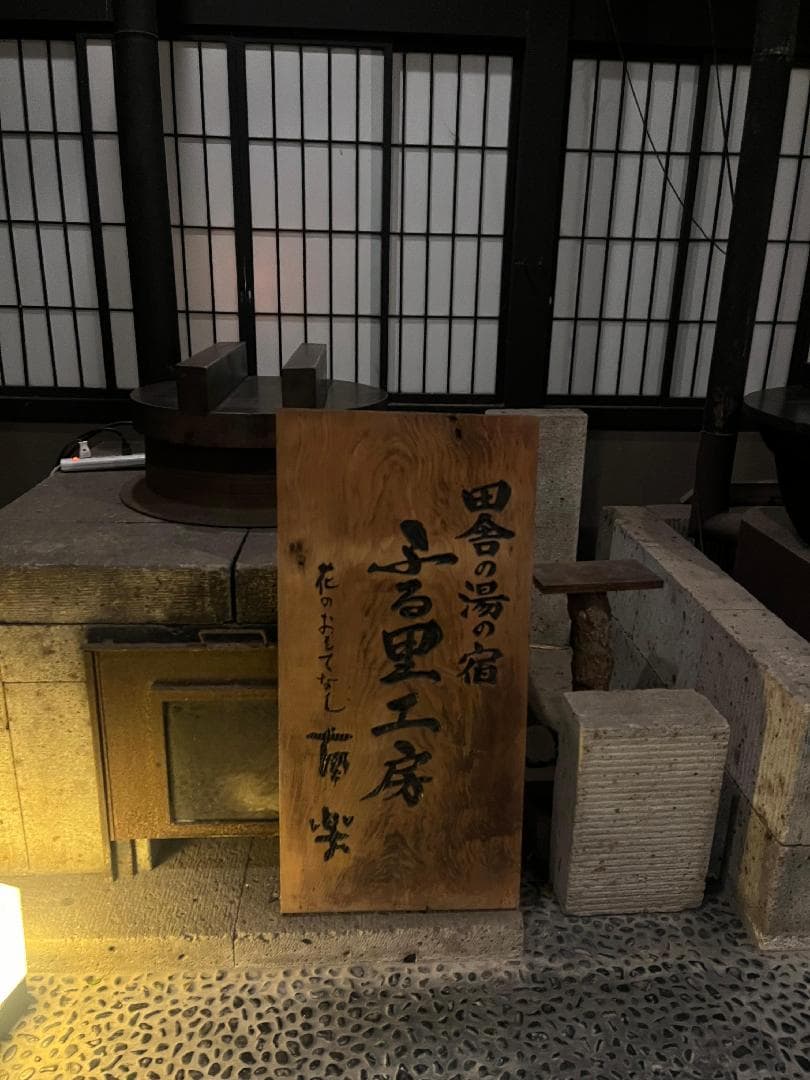 田舎の湯の宿
ふる里工房
花のおもてなし 南楽